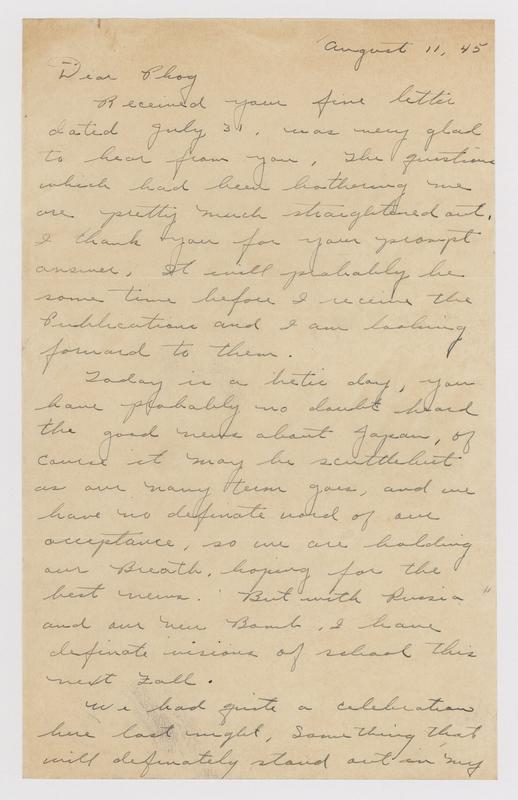 August 11, 45
Dear Phog
Received your fine letter
dated July 31, was very glad
to hear from you, The questions
which had been bothering me
are pretty much straightened out.
I thank you for your prompt
answer, It will probably be
some time before I receive the
Publications and I am looking
forward to them.
Today is a hetic day, you
have probably no doubt heard
the good news about Japan, of
course it may be scuttlebut
as our navy term goes, and we
have no definate word of our
acceptance, so we are holding
our Breath, hoping for the
best news. But with Russia
and our new Bomb, I have
definate visions of school this
next Fall.
We had quite a celebration
here last night, Something that
will definately stand out in my